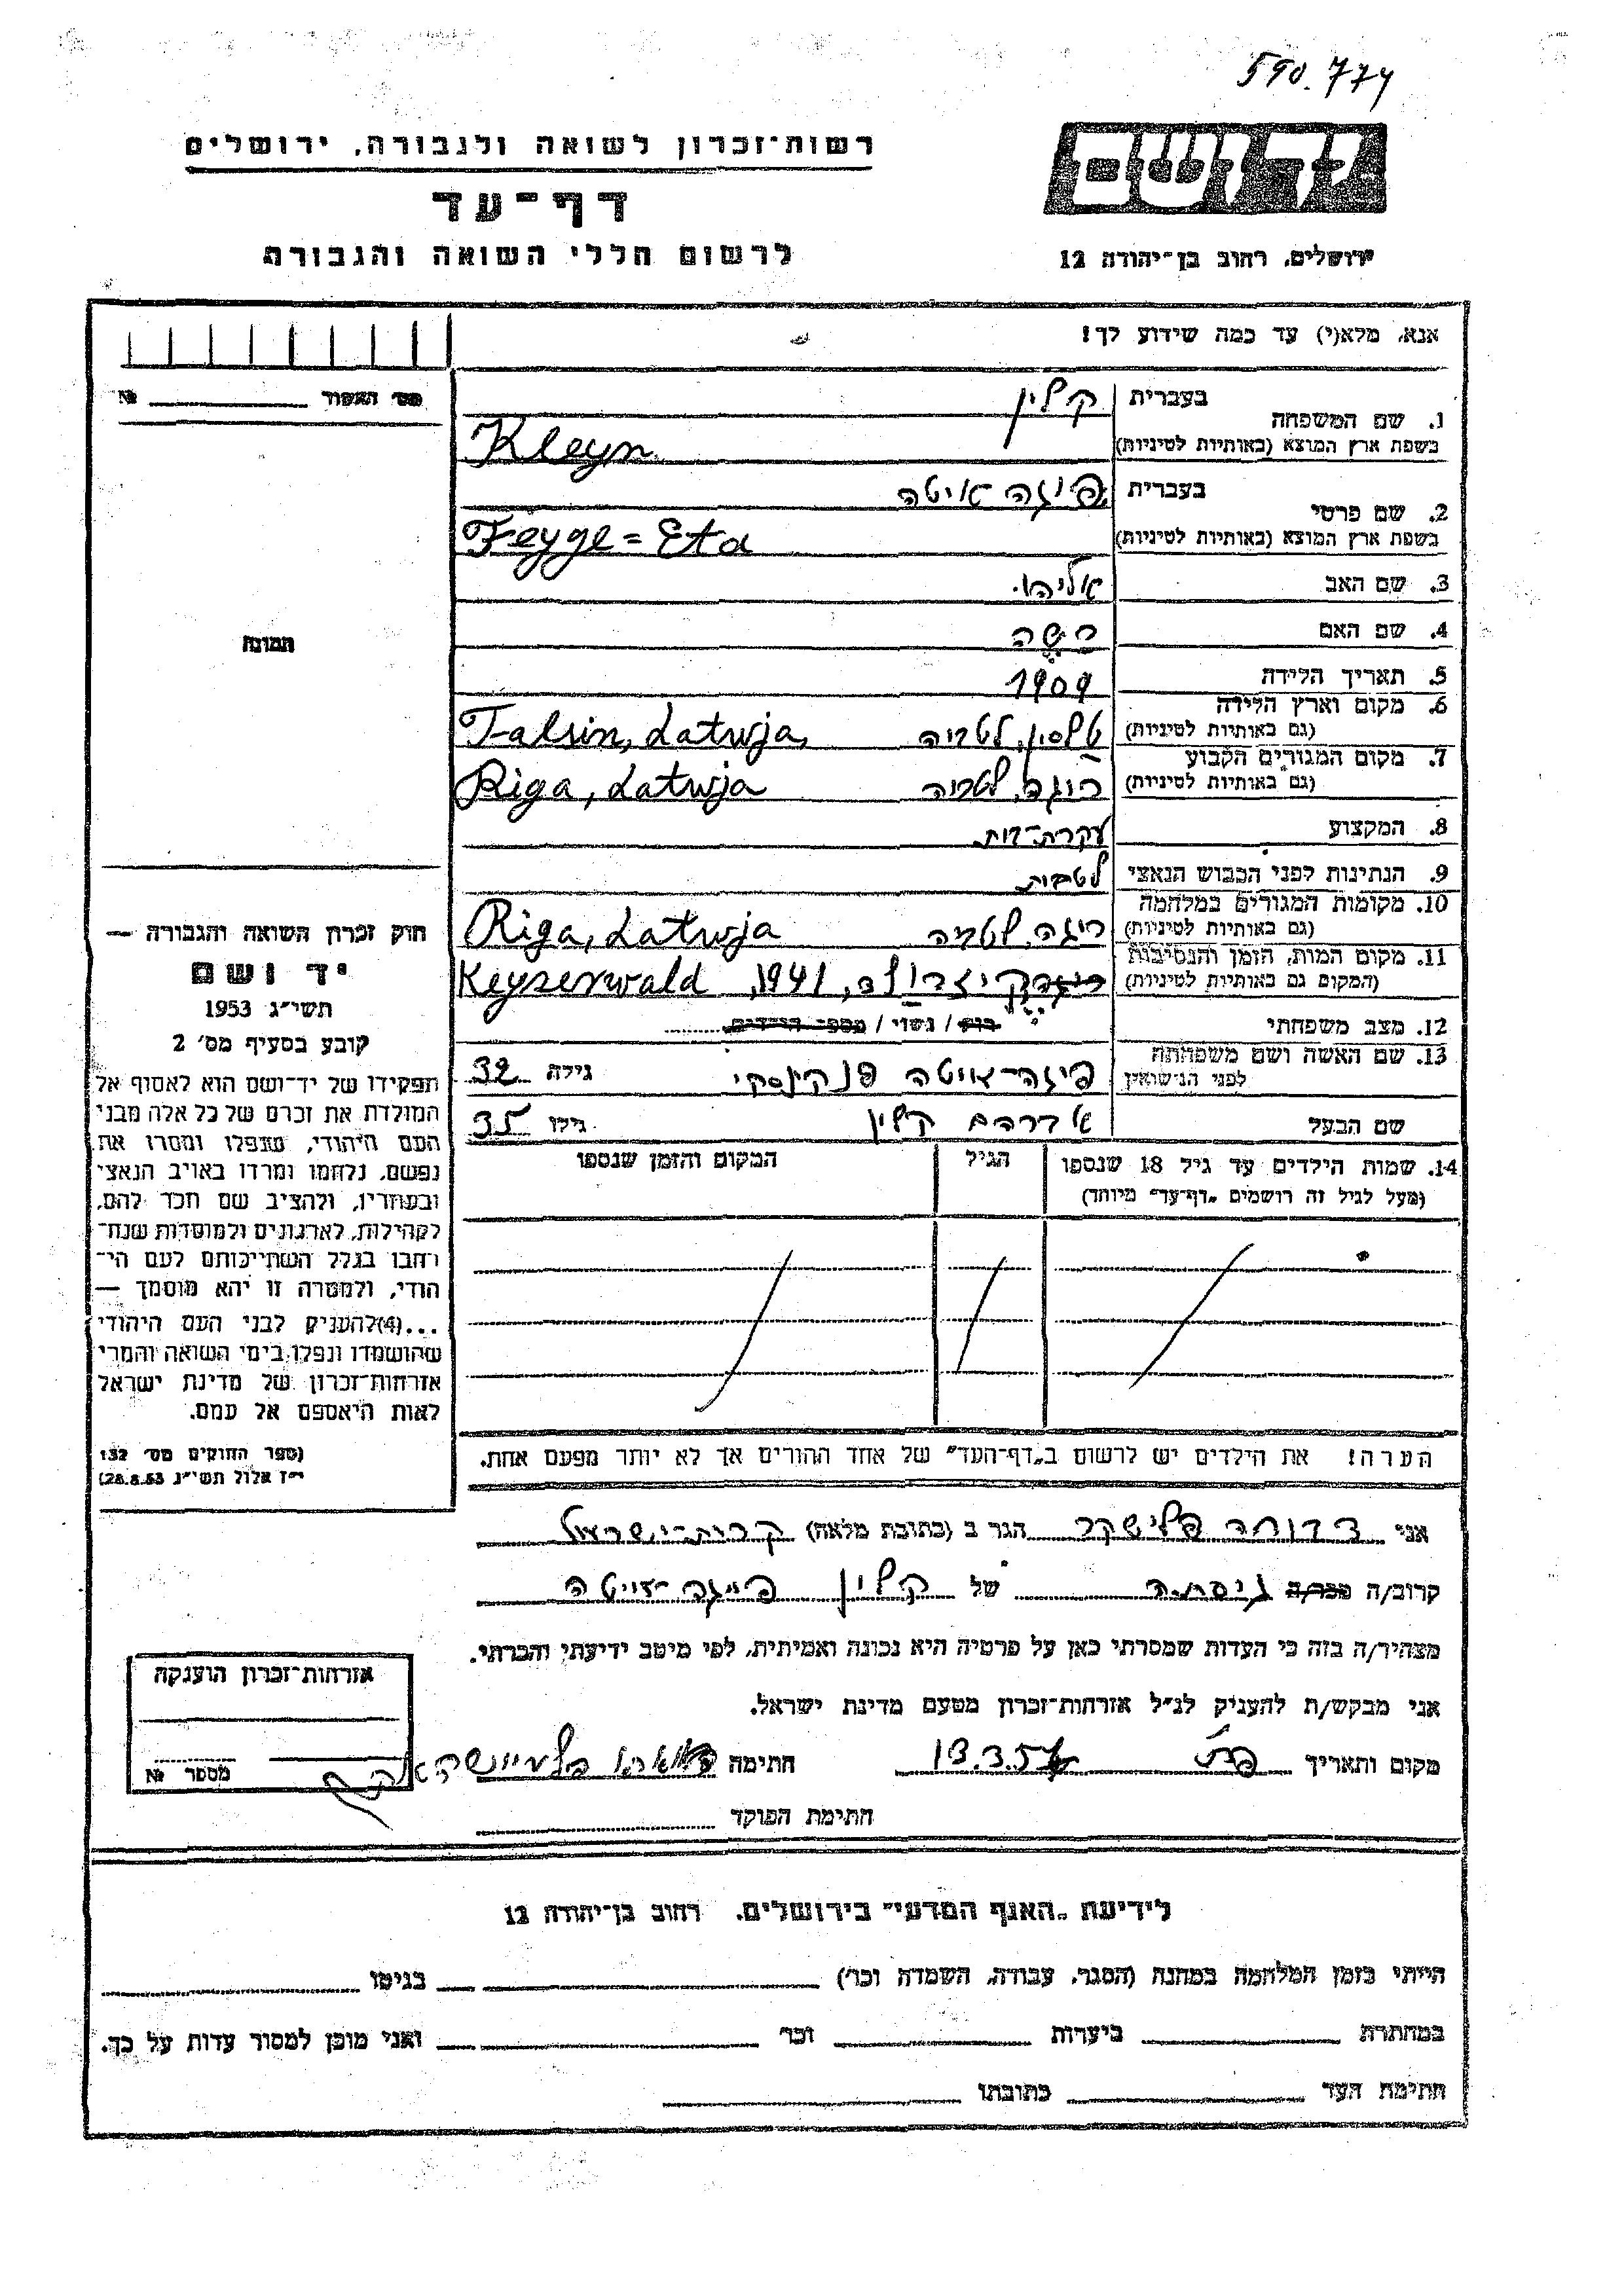 590.774
רשות־זכרון לשואה ולגבורה, ירושלים
דף־עד
לרשום חללי השואה והגבורה
ידושם
ירושלים, רחוב בן־יהודה 12
אנא, מלא(י) עד כמה שידוע לך!
מס׳ האשור № 
1. שם המשפחה
בעברית קלין
בשפת ארץ המוצא (באותיות לטיניות) Kleyn
2. שם פרטי
בעברית פיגה איטה
בשפת ארץ המוצא (באותיות לטיניות) Feyge = Eta
3. שם האב אליהו
4. שם האם
5. תאריך הלידה 1909
6. מקום וארץ הלידה
(גם באותיות לטיניות) טלסין, לטביה Talsin, Latwja,
7. מקום המגורים הקבוע
(גם באותיות לטיניות) ריגה, לטביה Riga, Latwja
8. המקצוע עקרת־בית
9. הנתינות לפני הכבוש הנאצי לטבית
10. מקומות המגורים במלחמה
(גם באותיות לטיניות) ריגה, לטביה Riga, Latwja
11. מקום המות, הזמן והנסיבות
(המקום גם באותיות לטיניות) קיזרולד, 1941, Keyzerwald
12. מצב משפחתי רוק / נשוי / מספר הילדים
13. שם האשה ושם משפחתה
לפני הנישואין פיגה־איטה פנקינסקי גילה 32
שם הבעל אברהם קלין גילו 35
14. שמות הילדים עד גיל 18 שנספו
(מעל לגיל זה רושמים „דף־עד״ מיוחד)
הגיל
המקום והזמן שנספו
הערה! את הילדים יש לרשום ב„דף־העד״ של אחד ההורים אך לא יותר מפעם אחת.
תמונה
חוק זכרון השואה והגבורה —
יד ושם
תשי״ג 1953
קובע בסעיף מס׳ 2
תפקידו של יד־ושם הוא לאסוף אל
המולדת את זכרם של כל אלה מבני
העם היהודי, שנפלו ומסרו את
נפשם, נלחמו ומרדו באויב הנאצי
ובעוזריו, ולהציב שם וזכר להם,
לקהילות, לארגונים ולמוסדות שנח־
רבו בגלל השתייכותם לעם הי־
הודי, ולמטרה זו יהא מוסמך —
...(4)להעניק לבני העם היהודי
שהושמדו ונפלו בימי השואה והמרי
אזרחות־זכרון של מדינת ישראל
לאות היאספם אל עמם.
(ספר החוקים מס׳ 132
י״ז אלול תשי״ג 28.8.53)
אני דבורה פלישקר הגר ב (כתובת מלאה) קרית־ישראל
קרוב/ה מכר/ה גיסתה של קלין פייגה־איטה
מצהיר/ה בזה כי העדות שמסרתי כאן על פרטיה היא נכונה ואמיתית, לפי מיטב ידיעתי והכרתי.
אני מבקש/ת להעניק לנ״ל אזרחות־זכרון מטעם מדינת ישראל.
מקום ותאריך 13.3.57 חתימה
אזרחות־זכרון הוענקה
מספר №
חתימת הפוקד
לידיעת „האגף המדעי״ בירושלים, רחוב בן־יהודה 12
הייתי בזמן המלחמה במחנה (הסגר, עבודה, השמדה וכו׳) בגיטו
במחתרת ביערות וכו׳ ואני מוכן למסור עדות על כך.
חתימת העד כתובתו